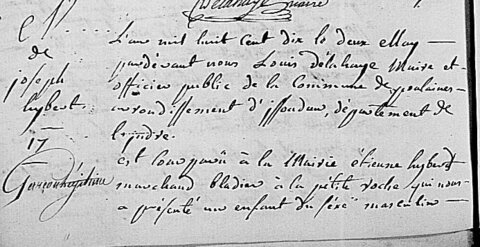 Delahaye maire
N.
de
joseph
hybert
17
L'an mil huit cent dix le deux May
pardevant nous Louis délahaye Maire et
officier public de la Commune de poulaines
arrondissement d'issoudun, département de
l'jndre.
est comparû à la Mairie étienne hybert
marchand bladier à la pétite roche qui nous
a présenté un enfant du séxe masculin